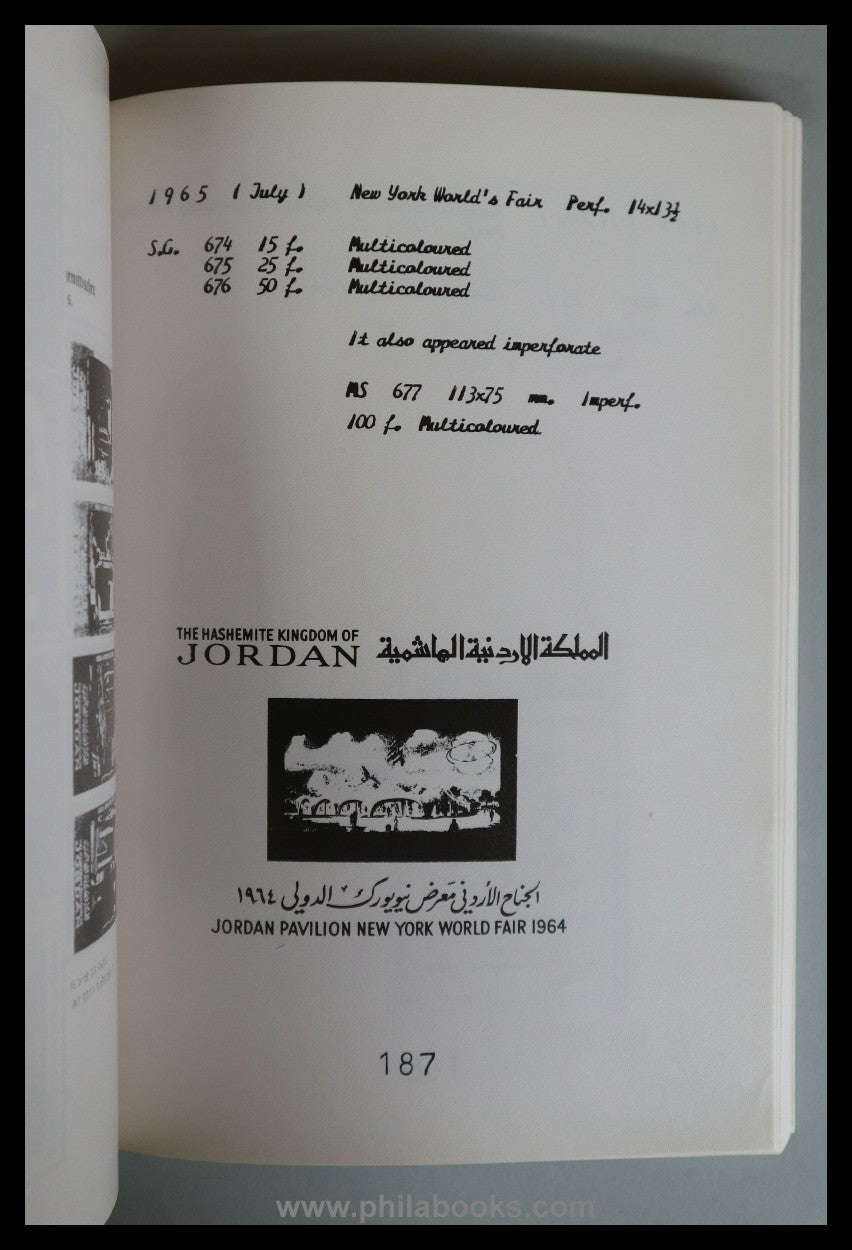 1965 (July) New York World's Fair Perf. 14x13½
S.G. 674 15 f. Multicoloured
675 25 f. Multicoloured
676 50 f. Multicoloured
It also appeared imperforate
MS 677 113x75 mm. Imperf.
100 f. Multicoloured.
THE HASHEMITE KINGDOM OF
JORDAN
المملكة الاردنية الهاشمية
الجناح الأردني معرض نيويورك الدولي ١٩٦٤
JORDAN PAVILION NEW YORK WORLD FAIR 1964
187
www.philabooks.com